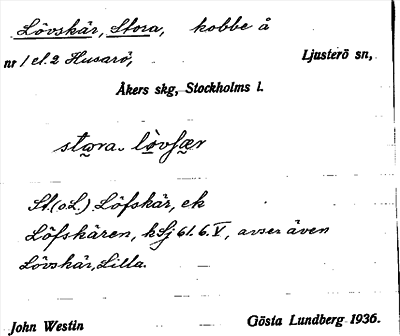 Lövskär, Stora, kobbe å
nr 1 el. 2 Husarö, Ljusterö sn,
Åkers skg, Stockholms l.
stora. lövſær
St. (o. L.) Löfskär, ek
Löfskären, kSj 61. 6. V, avser även
Lövskär, Lilla.
John Westin Gösta Lundberg 1936.